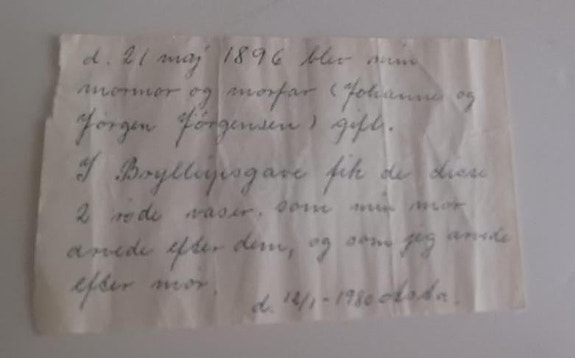 d. 21 maj 1896 blev min
mormor og morfar (Johanne og
Jørgen Jörgensen) gift.
I Bryllupsgave fik de disse
2 røde vaser, som min mor
arvede efter dem, og som jeg arvede
efter mor.
d. 12/1 - 1980